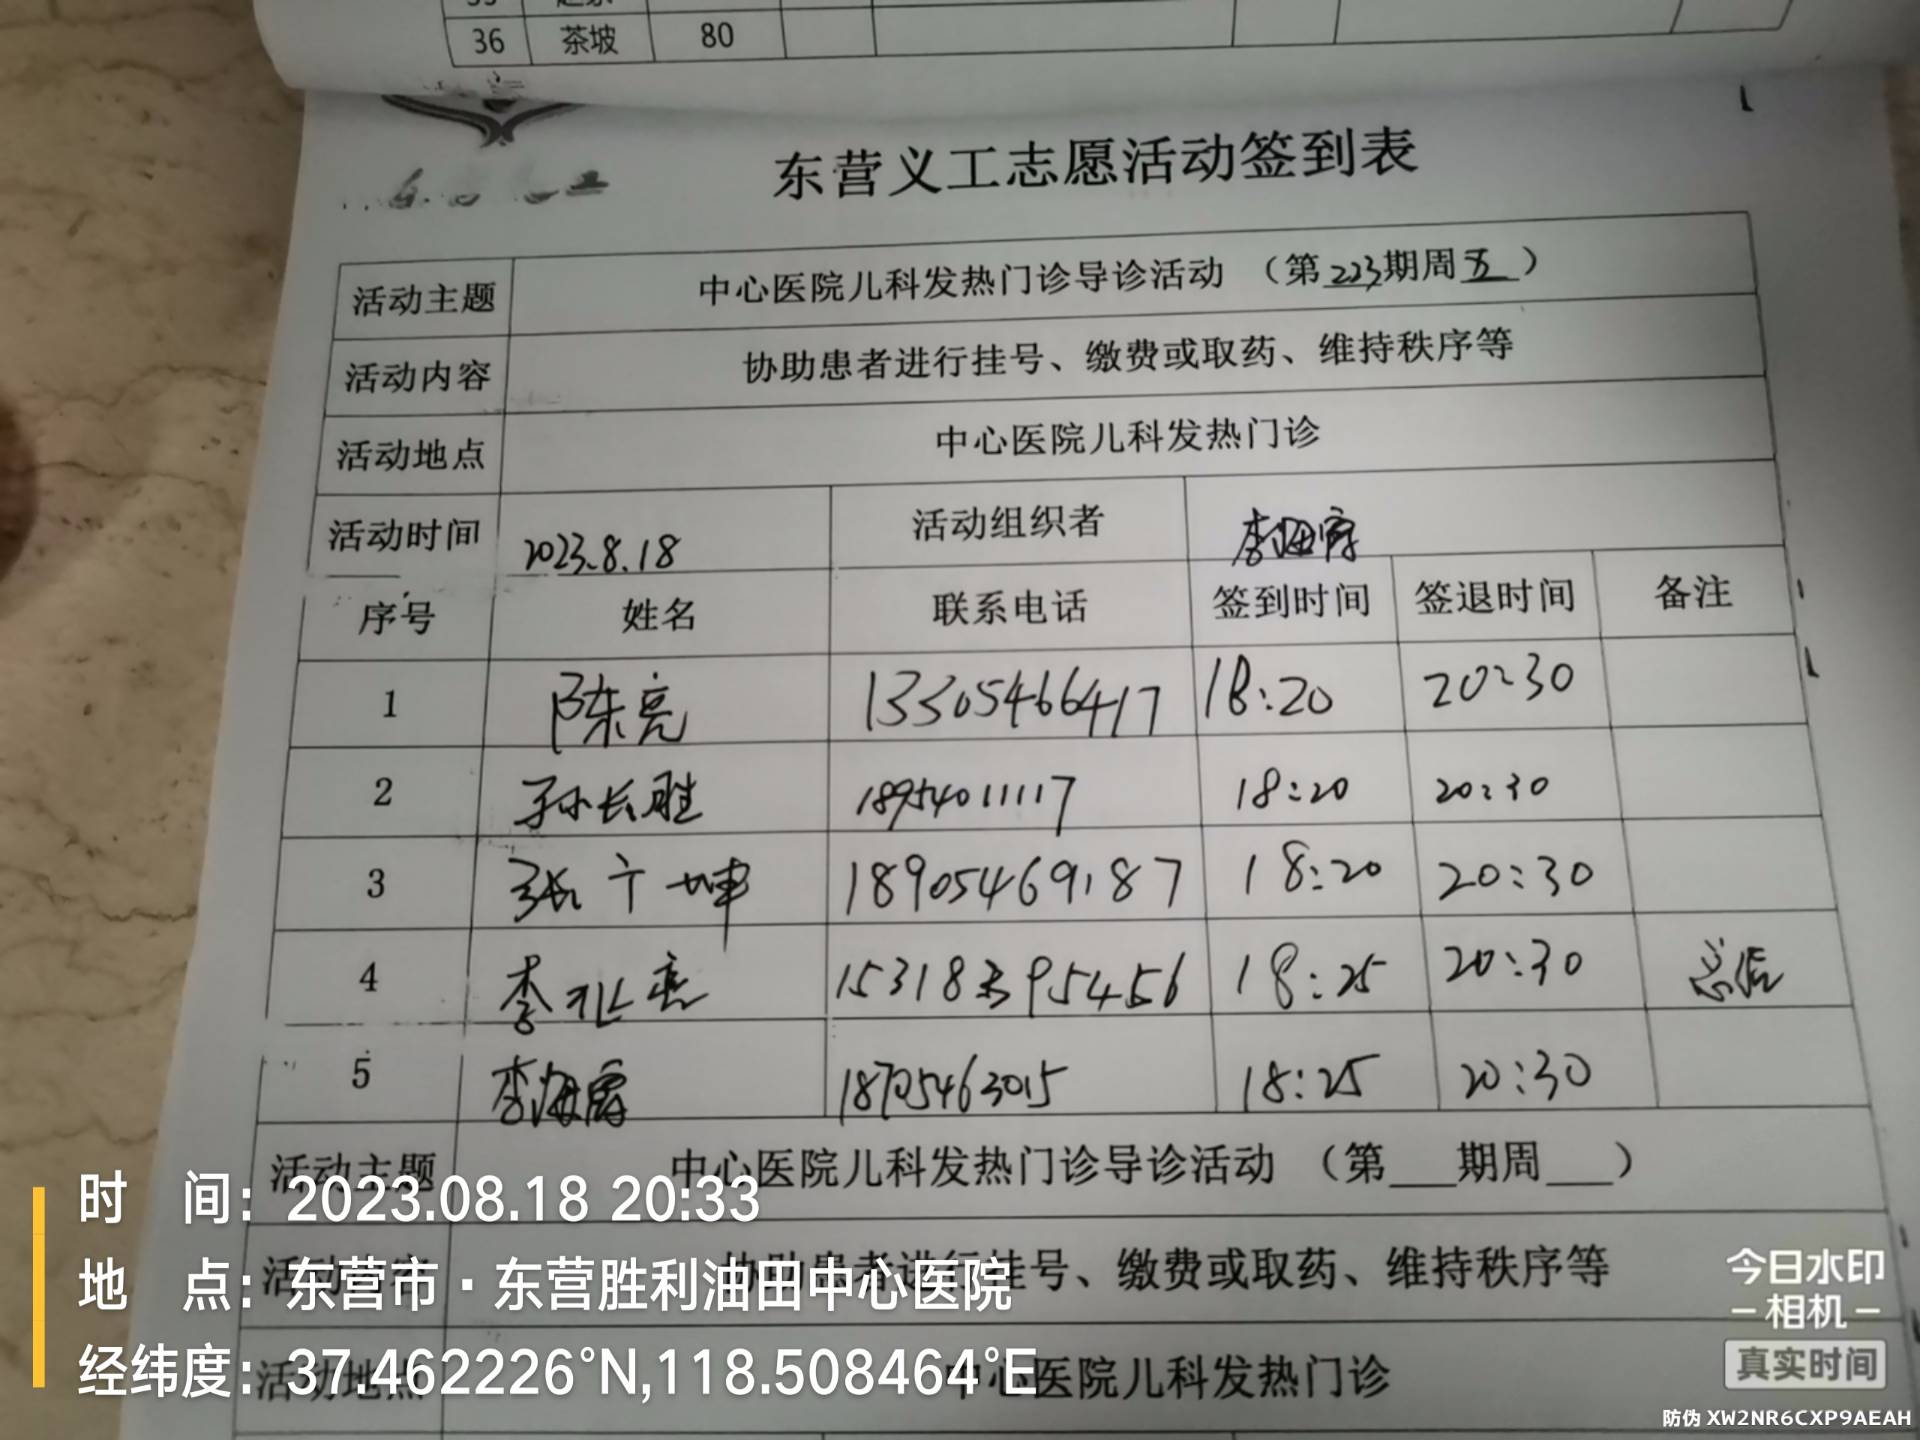 36 茶坡 80
东营义工志愿活动签到表
活动主题 中心医院儿科发热门诊导诊活动 (第223期周五)
活动内容 协助患者进行挂号、缴费或取药、维持秩序等
活动地点 中心医院儿科发热门诊
活动时间 2023.8.18 活动组织者 李海
序号 姓名 联系电话 签到时间 签退时间 备注
1 陈亮 13305466417 18:20 20:30
2 孙长胜 18954011117 18:20 20:30
3 张 坤 18905469187 18:20 20:30
4 李 亮 18:25 20:30
5 李海 18705463015 18:25 20:30
活动主题 中心医院儿科发热门诊导诊活动 (第___期周___)
活动内容 协助患者进行挂号、缴费或取药、维持秩序等
活动地点 中心医院儿科发热门诊
时 间: 2023.08.18 20:33
地 点: 东营市·东营胜利油田中心医院
经纬度: 37.462226°N,118.508464°E
今日水印
-相机-
真实时间
防伪 XW2NR6CXP9AEAH